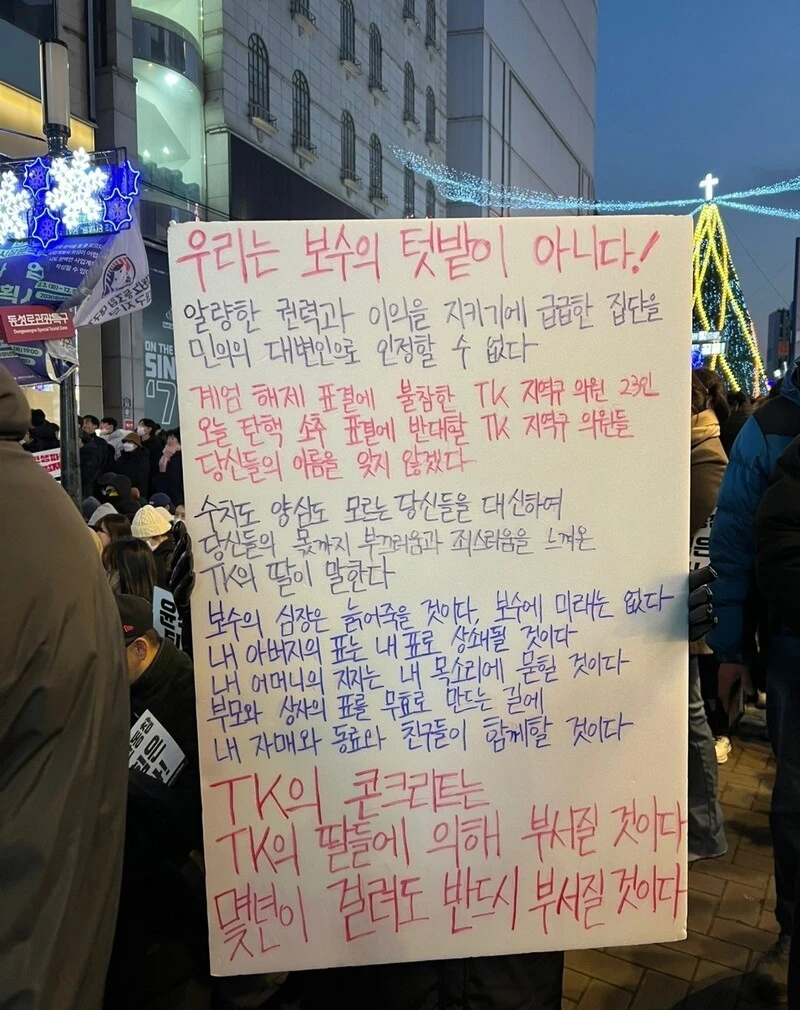 우리는 보수의 텃밭이 아니다!
알량한 권력과 이익을 지키기에 급급한 집단을
민의의 대변인으로 인정할 수 없다
계엄 해제 표결에 불참한 TK 지역구 의원 23인
오늘 탄핵 소추 표결에 반대할 TK 지역구 의원들
당신들의 이름을 잊지 않겠다
수치도 양심도 모르는 당신들을 대신하여
당신들의 몫까지 부끄러움과 죄스러움을 느껴온
TK의 딸이 말한다
보수의 심장은 늙어죽을 것이다, 보수에 미래는 없다
내 아버지의 표는 내 표로 상쇄될 것이다
내 어머니의 지지는 내 목소리에 묻힐 것이다
부모와 상사의 표를 무효로 만드는 길에
내 자매와 동료와 친구들이 함께할 것이다
TK의 콘크리트는
TK의 딸들에 의해 부서질 것이다
몇년이 걸려도 반드시 부서질 것이다
동성로관광특구
Dongseongno Special Tourist Zone
ON THE
SIN
'7